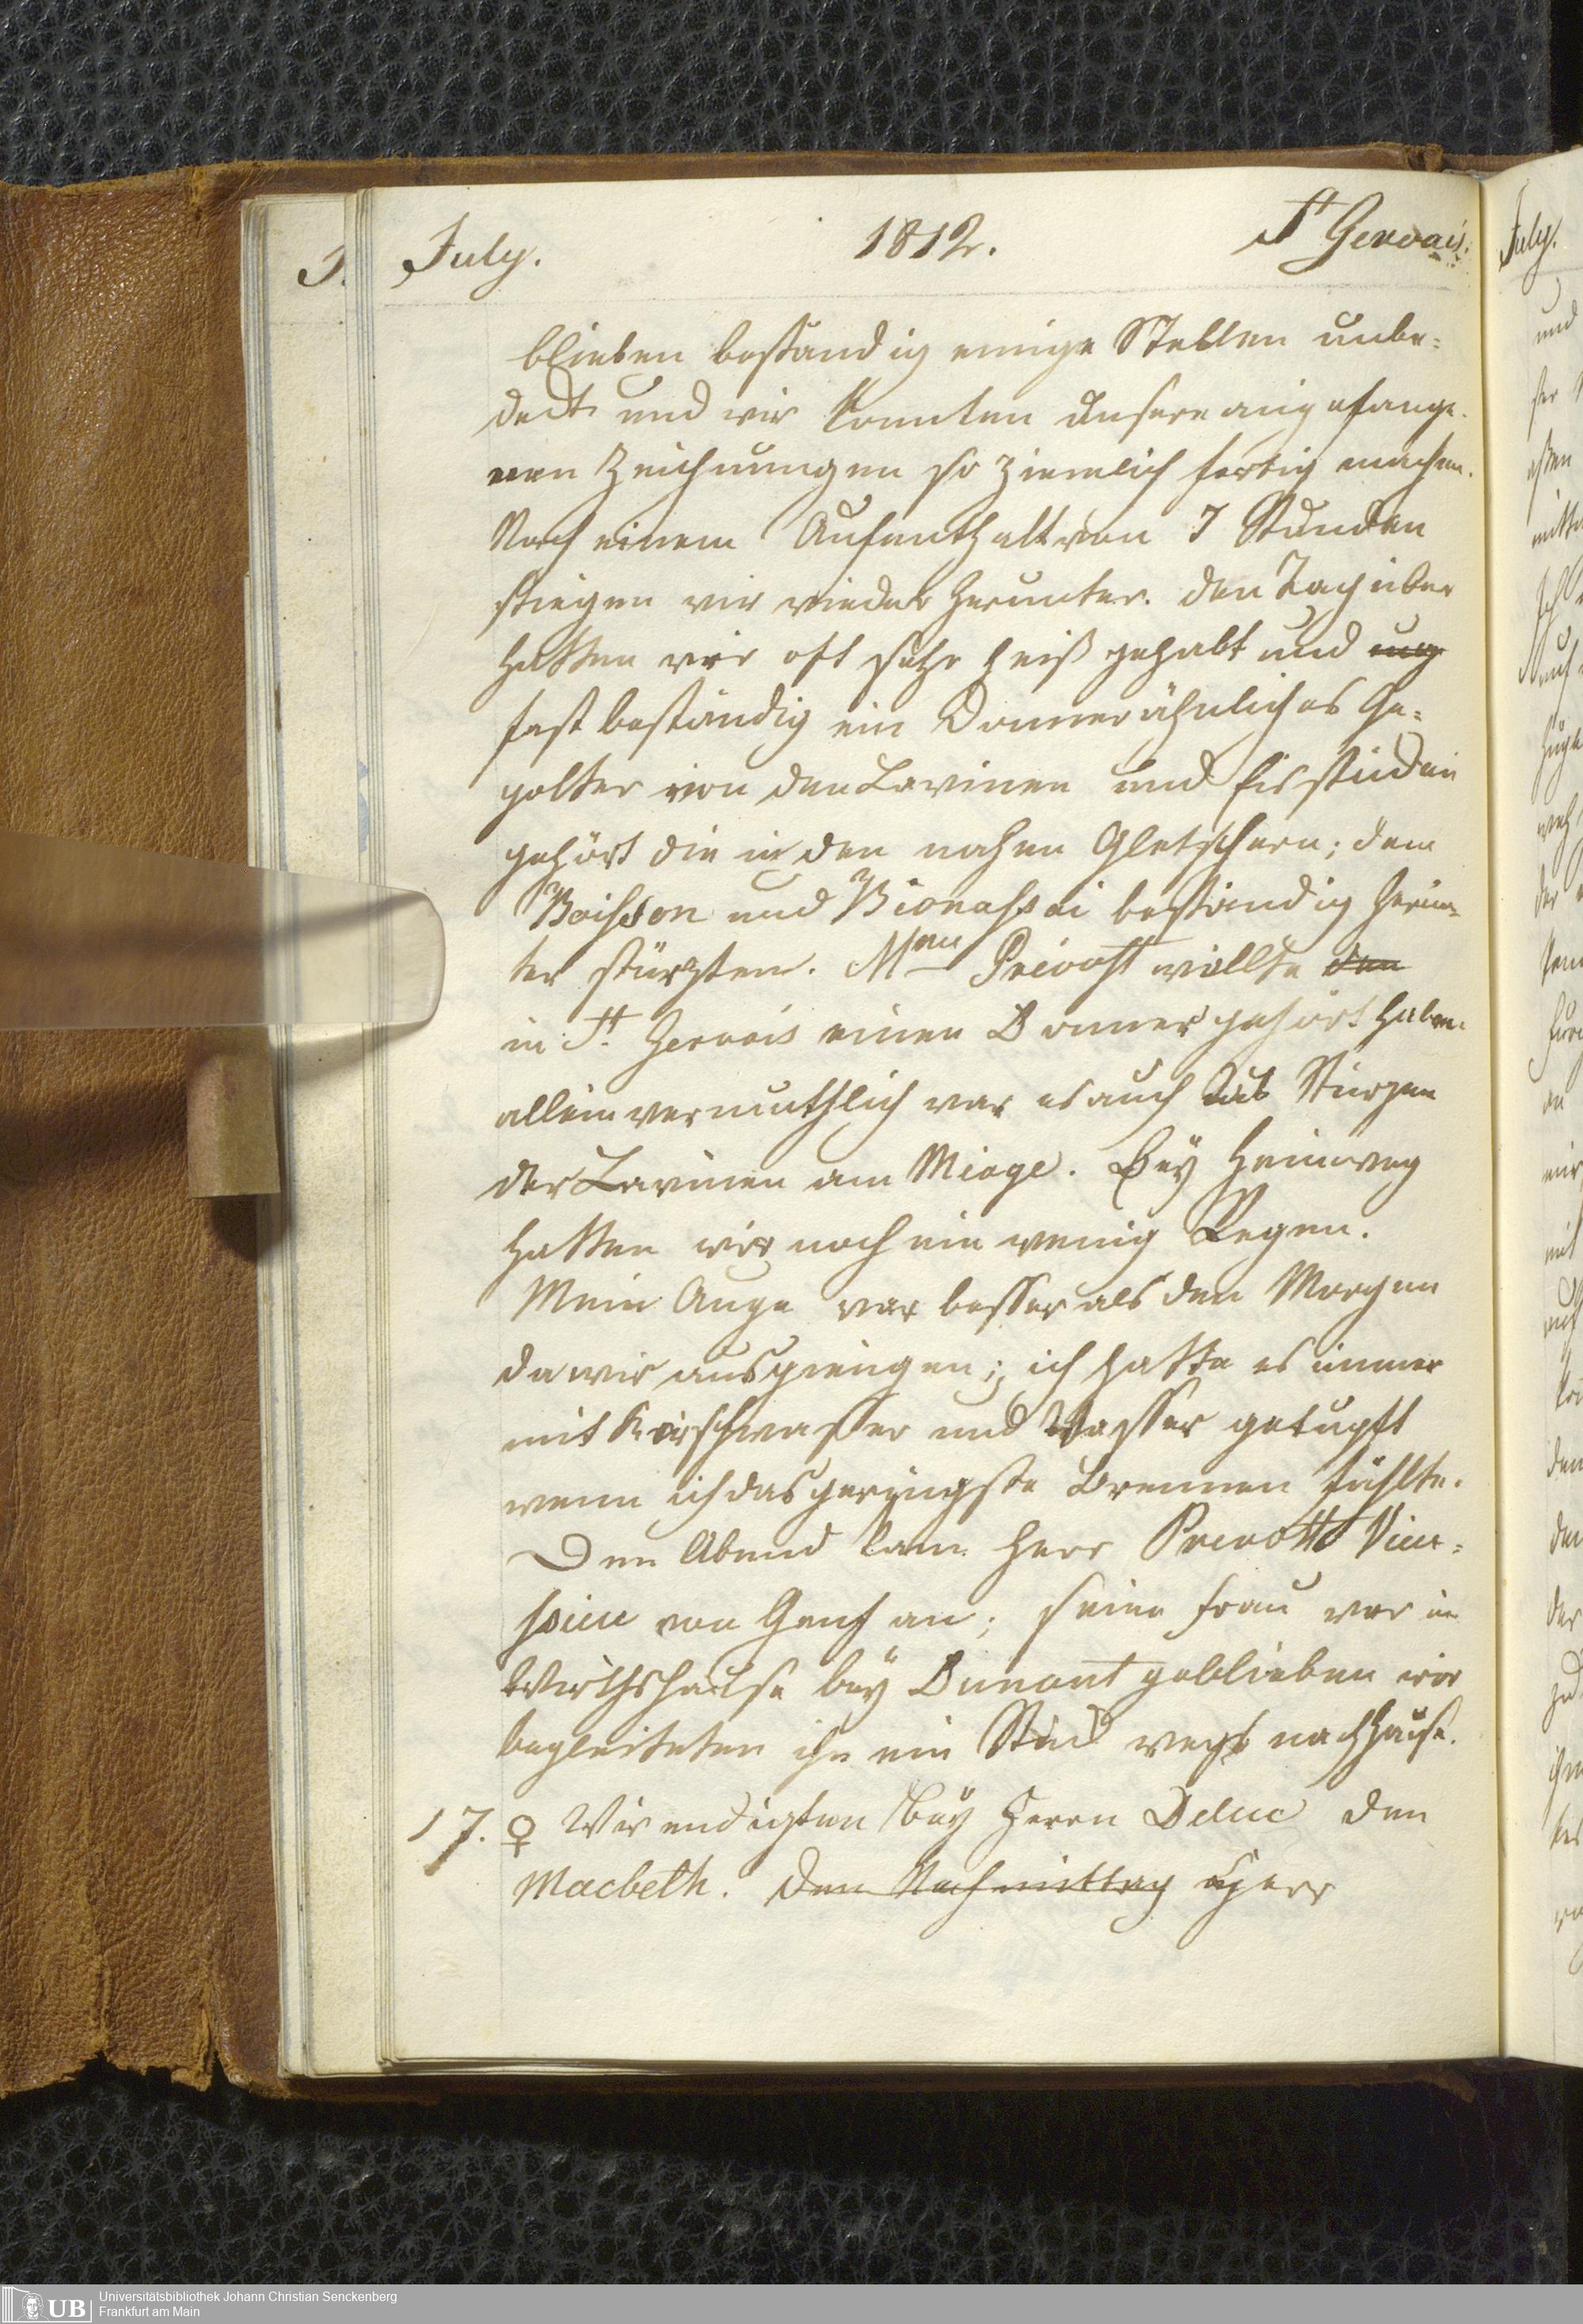 July. 1812. St Gervais.
blieben beständig einige Stellen unbe=
deckt und wir konnten unsere angefange=
nen Zeichnungen so ziemlich fertig machen.
Nach einem Aufenthalt von 7 Stunden
stiegen wir wieder herunter. Den Tag über
hatten wir oft sehr heiß gehabt und ung
fast beständig ein Donnerähnliches Ge=
polter von den Lavinen und Eisstücken
gehört die in den nahen Gletschern; dem
Boisson und Bionassai beständig herun=
ter stürzten. Mme Prévost wollte den
in St. Gervais einen Donner gehört haben.
allein vermuthlich war es auch das Stürzen
der Lavinen am Miage. Bey Heimweg
hatten wir noch ein wenig Regen.
Mein Auge war besser als den Morgen
da wir ausgiengen; ich hatte es immer
mit Kirschwasser und Wasser getupft
wenn ich das geringste Brennen fühlte.
Den Abend kam Herr Prevost
von Genf an; seine Frau war im
Wirthshause bey Dunant geblieben wir
begleiteten ihn ein Stück wegs nach Hause.
17. ♀ Wir endigten bey Herrn Deluc den
Macbeth. Den Nachmittag Herr
July.
und
Universitätsbibliothek Johann Christian Senckenberg
Frankfurt am Main
UB